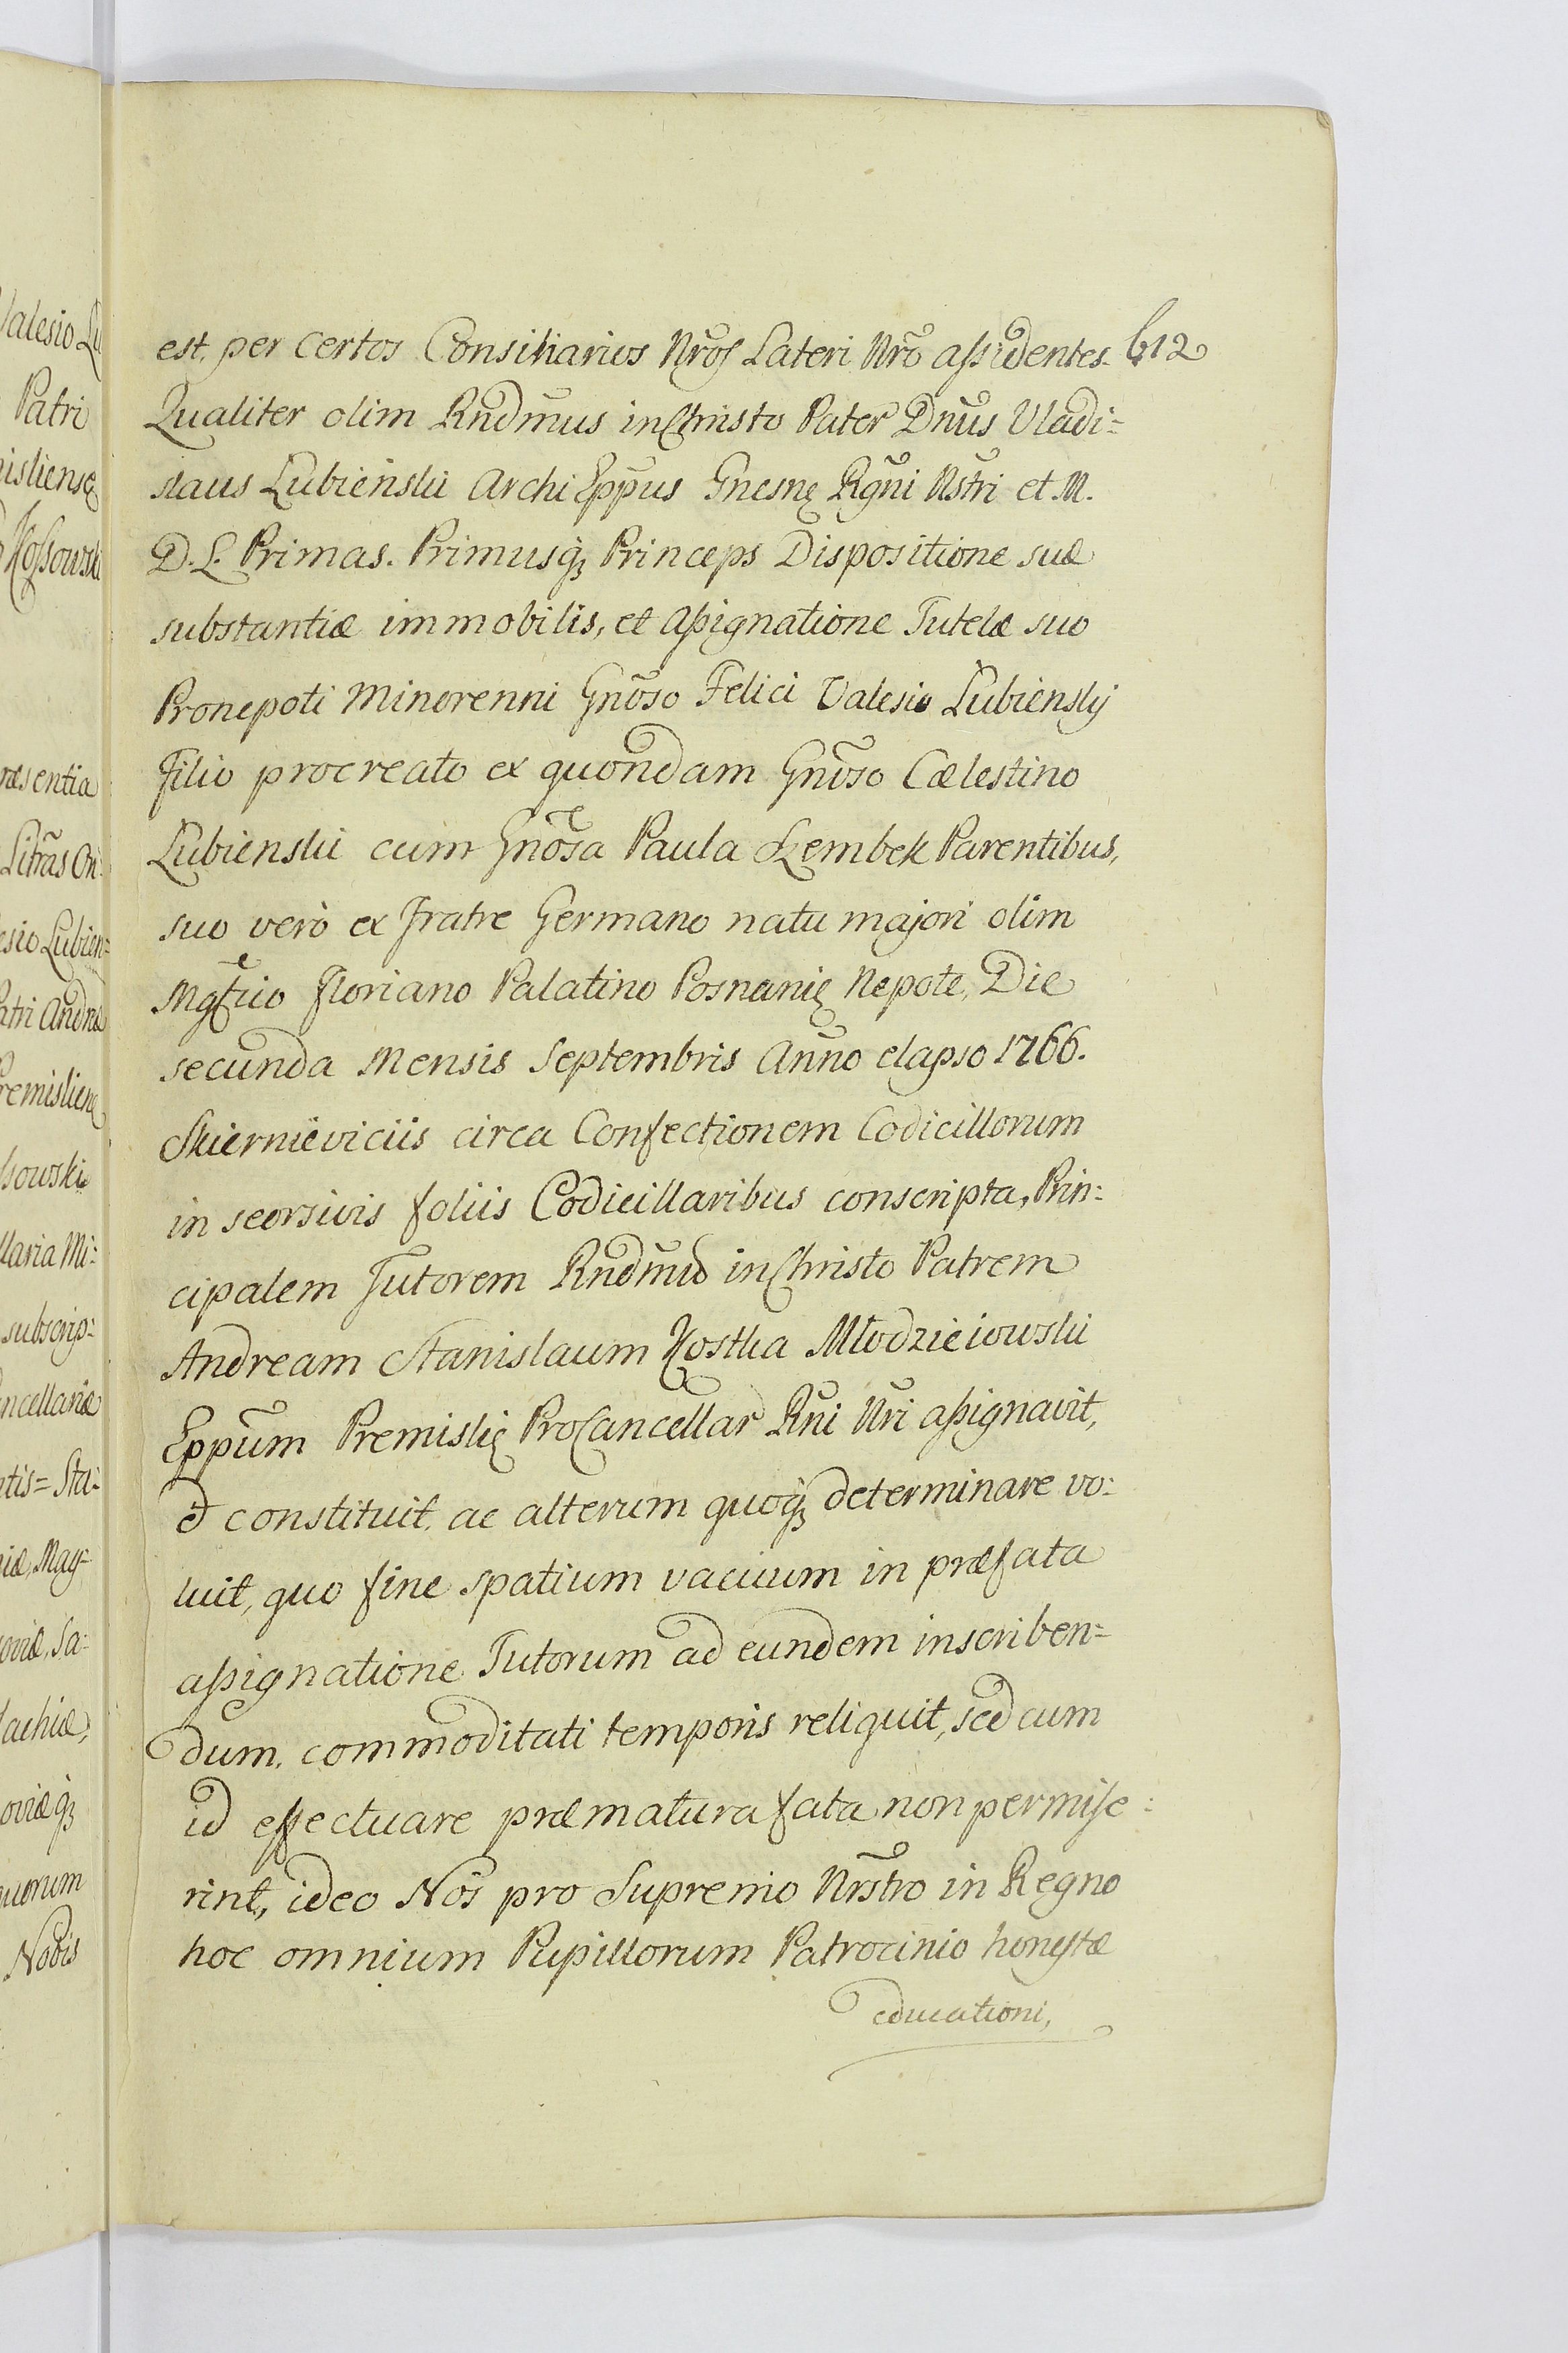 est, per certos Consiliarios Nros Lateri Nro assidentes. 612
Qualiter olim Rndmus in Christo Pater Dnus Vladi=
slaus Lubienski Archi Eppus Gnesnę Rgni Nstri et M.
D. L. Primas. Primusq́ Princeps Dispositione suæ
substantiæ immobilis, et assignatione Tutelæ suo
Pronepoti Minorenni Gnoso Felici Valesio Lubienskij
Filio procreato ex quondam Gnoso Cælestino
Lubienski cum Gnosa Paula Szembek Parentibus,
suo verò ex Fratre Germano natu majori olim
Mgfico Floriano Palatino Posnanię Nepote, Die
secunda Mensis Septembris Anno elapso 1766.
Skierniеviciis circa Confectionem Codicillorum
in seorsivis foliis Codicillaribus conscripta, Prin=
cipalem Tutorem Rndmū in Christo Patrem
Andream Stanislaum Kostka Młodzieiowski
Eppum Premislię ProCancellar Rni Nri assignavit,
et constituit, ac alterum quoq́ determinare vo:
luit, quo fine spatium vacuum in præfata
assignatione Tutorum ad eundem inscriben=
dum, commoditati temporis reliquit, sed cum
id effectuare præmatura fata non permise:
rint, ideo Nos pro Supremo Nrstro in Regno
hoc omnium Pupillorum Patrocinio honestæ
educationi,
Patri
Nobis